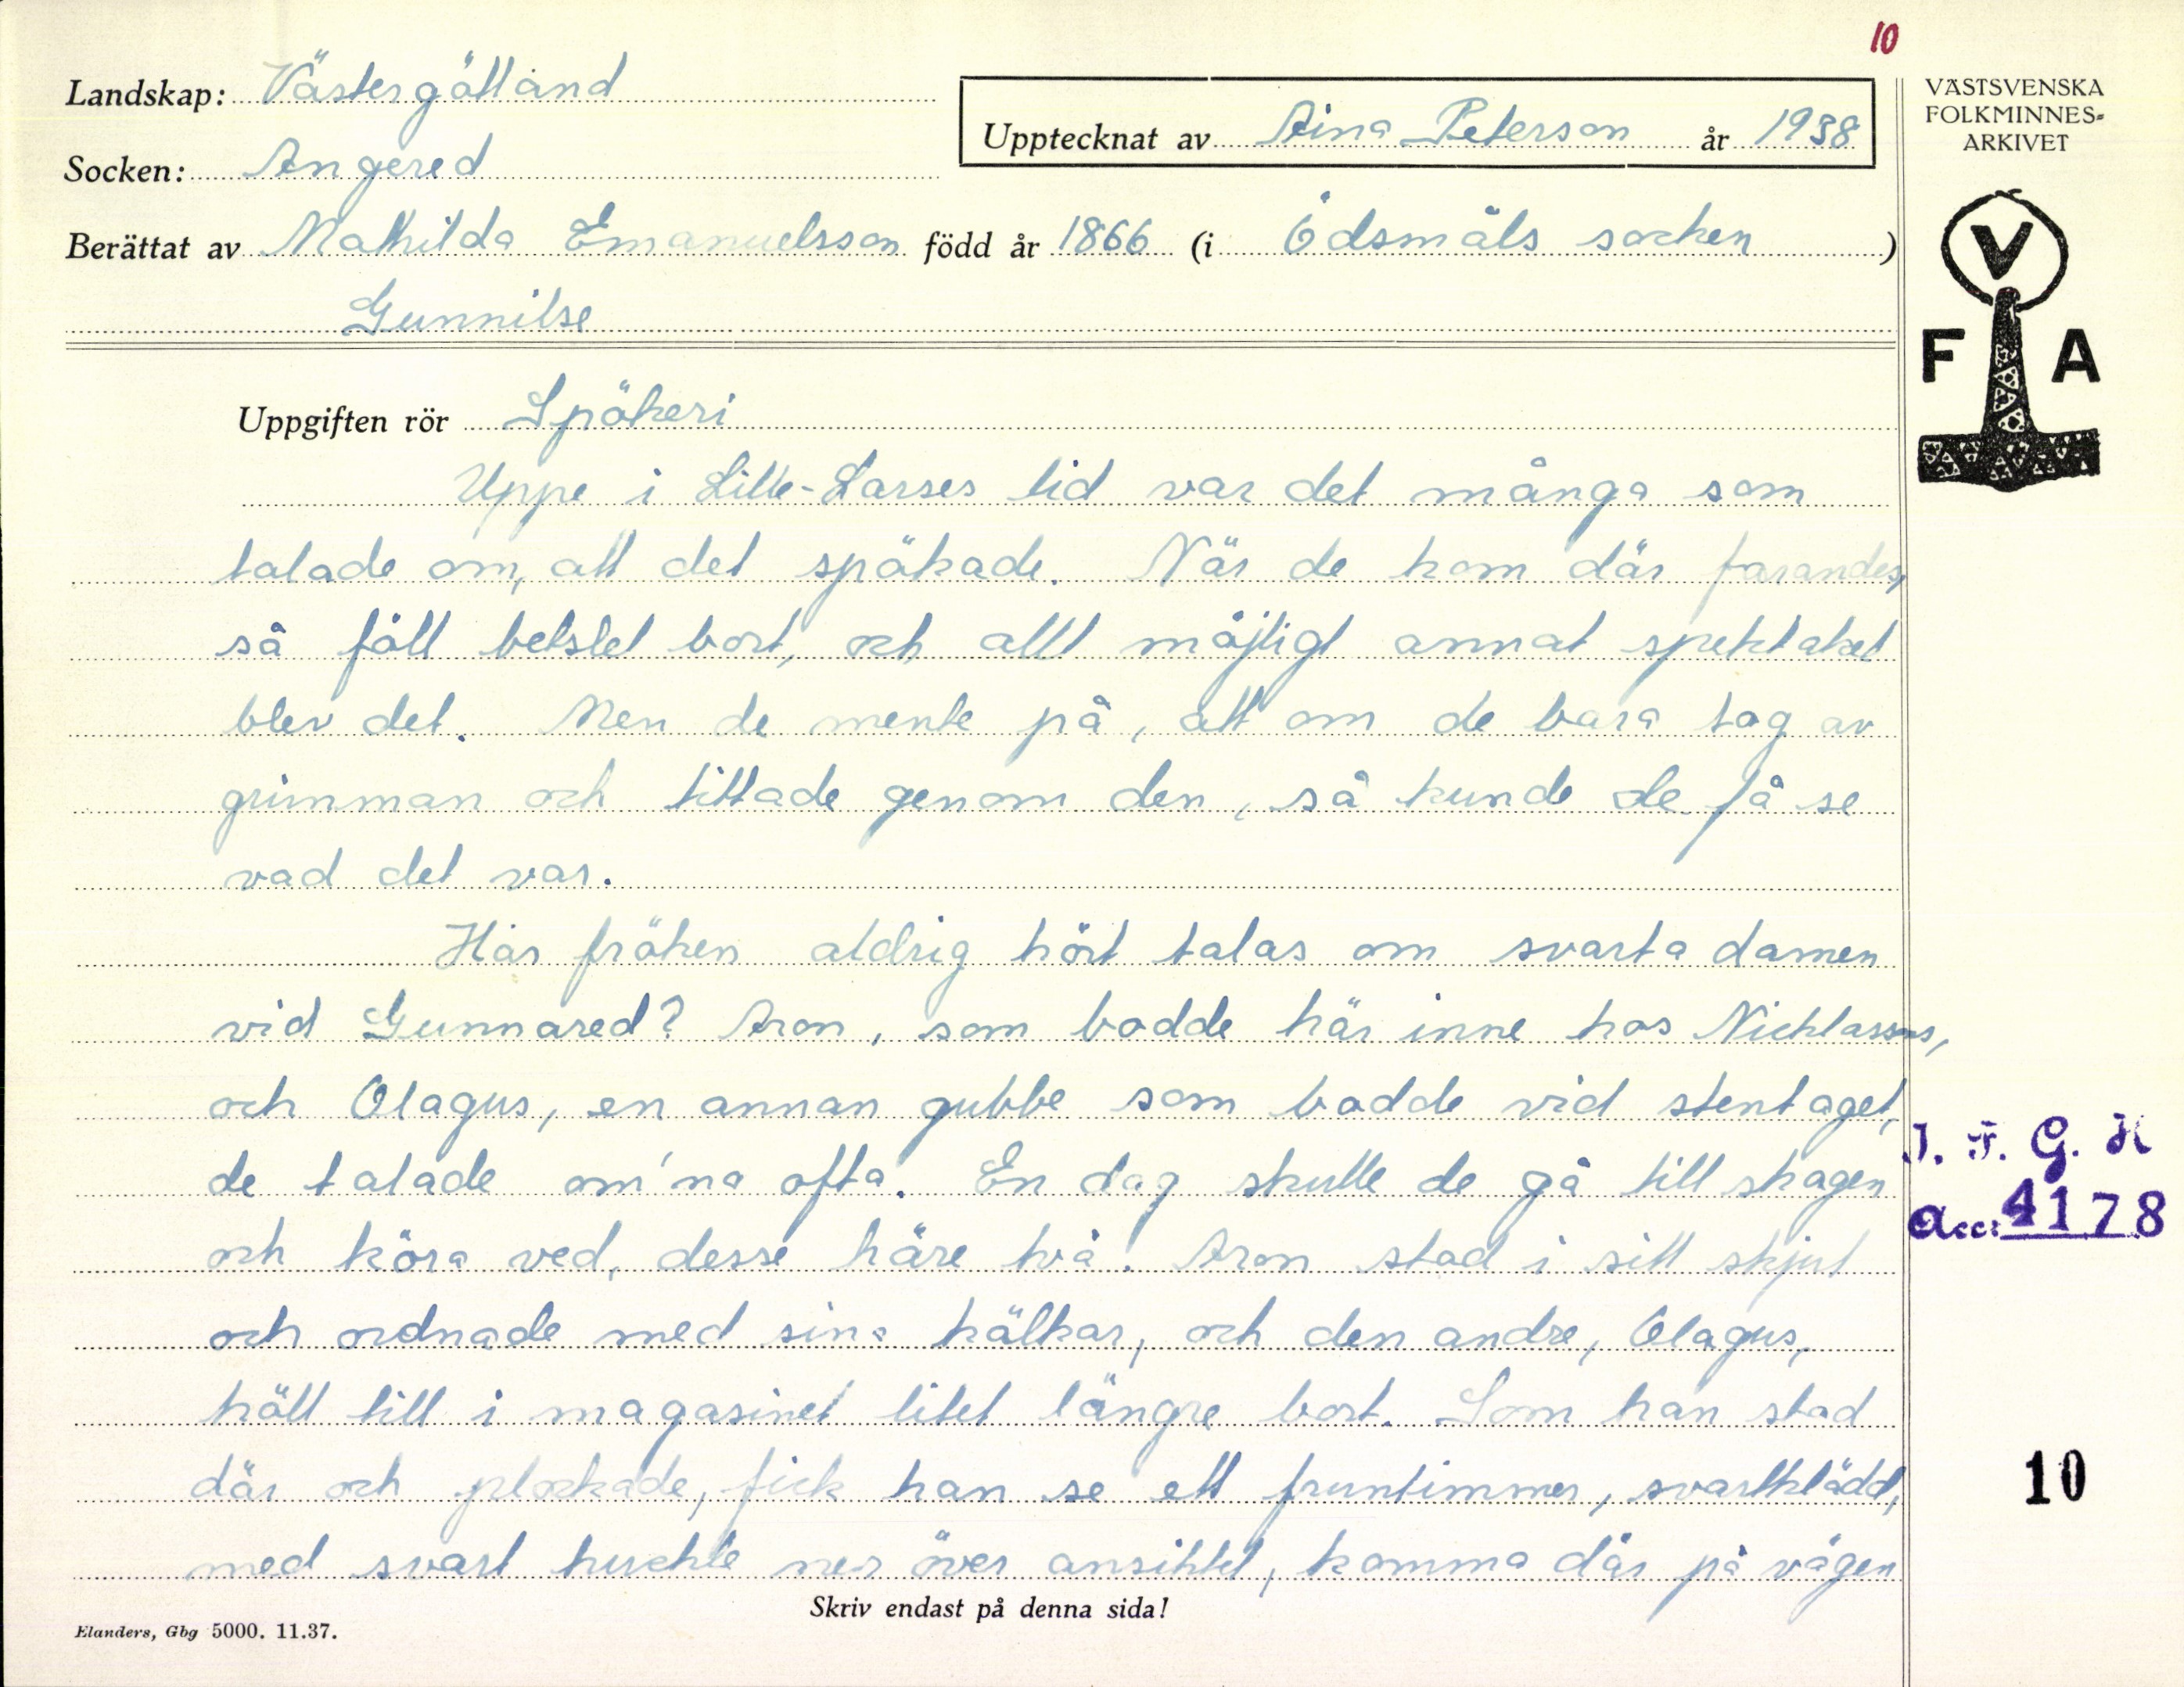 10
Landskap: Västergötland
Upptecknat av Aina Peterson år 1938
VÄSTSVENSKA
FOLKMINNES-
ARKIVET
Socken: Angered
Berättat av Mathilda Emanuelsson född år 1866 (i Ödsmåls socken)
Gunnilse
V
F A
Uppgiften rör Spökeri
Uppe i Lille-Larses lid var det många som
talade om, att det spökade. När de kom där farandes,
så föll betslet bort, och allt möjligt annat spektakel
blev det. Men de mente på, att om de bara tog av
grimman och tittade genom den, så kunde de få se
vad det var.
Har fröken aldrig hört talas om svarta damen
vid Gunnared? Aron, som bodde här inne hos Nicklassons,
och Olagus, en annan gubbe som bodde vid stentaget,
de talade om'na ofta. En dag skulle de gå till skogen
och köra ved, desse häre två. Aron stod i sitt skjul
och ordnade med sina kälkar, och den andre, Olagus,
höll till i magasinet litet längre bort. Som han stod
där och plockade, fick han se ett fruntimmer, svartklädd,
med svart huckle ner över ansiktet, komma där på vägen
I. F. G. H
Acc: 4178
10
Skriv endast på denna sida!
Elanders, Gbg 5000. 11.37.